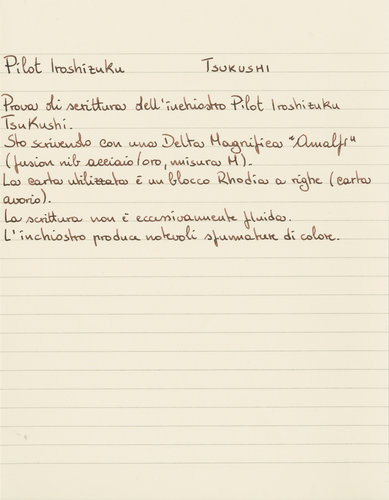 Pilot Iroshizuku Tsukushi
Prova di scrittura dell'inchiostro Pilot Iroshizuku
Tsukushi.
Sto scrivendo con una Delta Magnifica "Amalfi"
(fusion nib acciaio/oro, misura M).
La carta utilizzata è un blocco Rhodia a righe (carta
avorio).
La scrittura non è eccessivamente fluida.
L'inchiostro produce notevoli sfumature di colore.